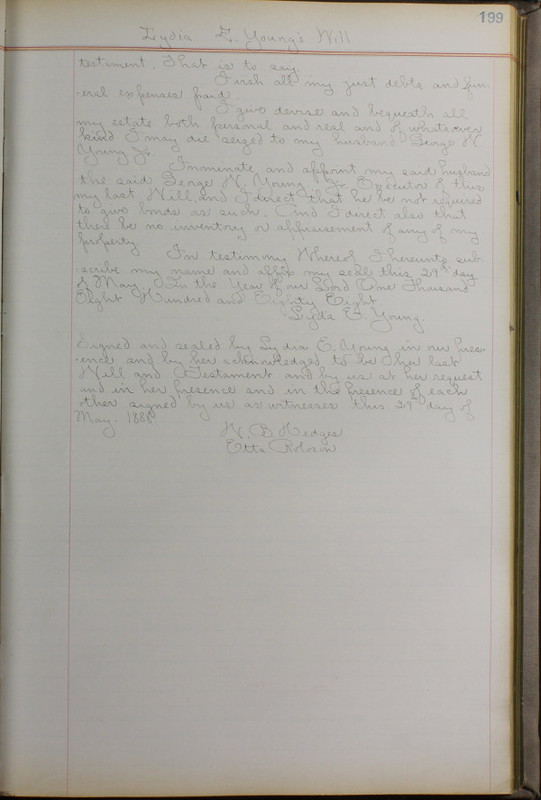 199
Lydia E. Young's Will
testiment. That is to say.
I wish all my just debts and fun-
eral expenses paid.
I give devise and bequeath all
my estate both personal and real and of whatsoever
kind I may die seized to my husband George N
Young Jr.
I nominate and appoint my said husband
the said George N. Young Jr. Executor of this
my last Will and I direct that he be not required
to give bonds as such. And I direct also that
there be no inventory or appraisement of any of my
property.
In testimony Whereof I hereunto sub-
scribe my name and affix my seal this 29th day
of May In the Year of our Lord One Thousand
Eight Hundred and Eighty Eight
Lyda E. Young.
Signed and sealed by Lydia E. Young in our pres-
ence and by her acknowledged to be her last
Will and Testament and by us at her request
and in her presence and in the presence of each
other signed by us as witnesses this 29th day of
May. 1888
W. B. Hedges
Etta